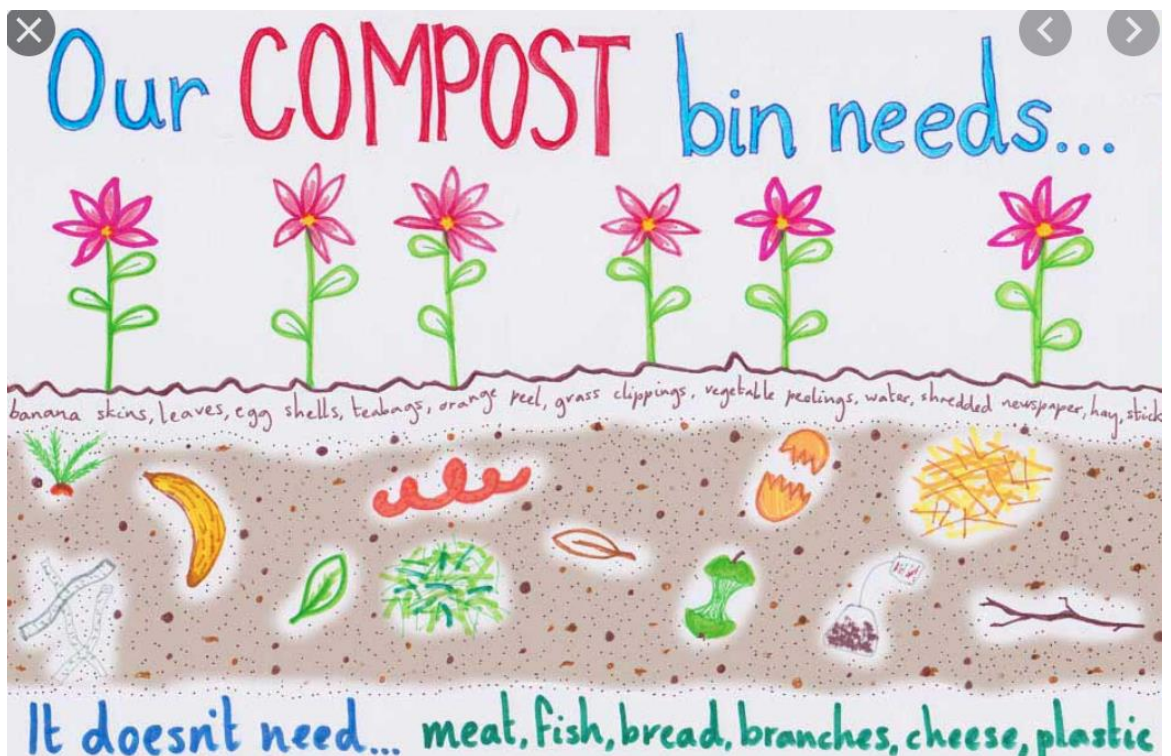 Our COMPOST bin needs...
banana skins, leaves, egg shells, teabags, orange peel, grass clippings, vegetable peelings, water, shredded newspaper, hay, stick
It doesn't need... meat, fish, bread, branches, cheese, plastic